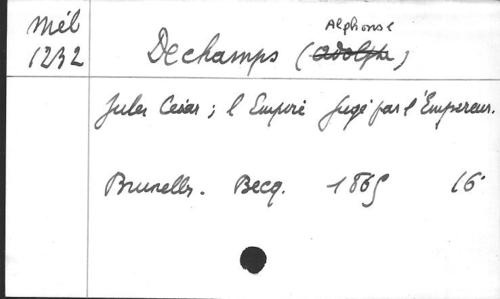 Mél
1232
Alphonse
Dechamps (Adolphe)
Jules César ; l'Empire jugé par l'Empereur.
Bruxelles. Becq. 1865 16°